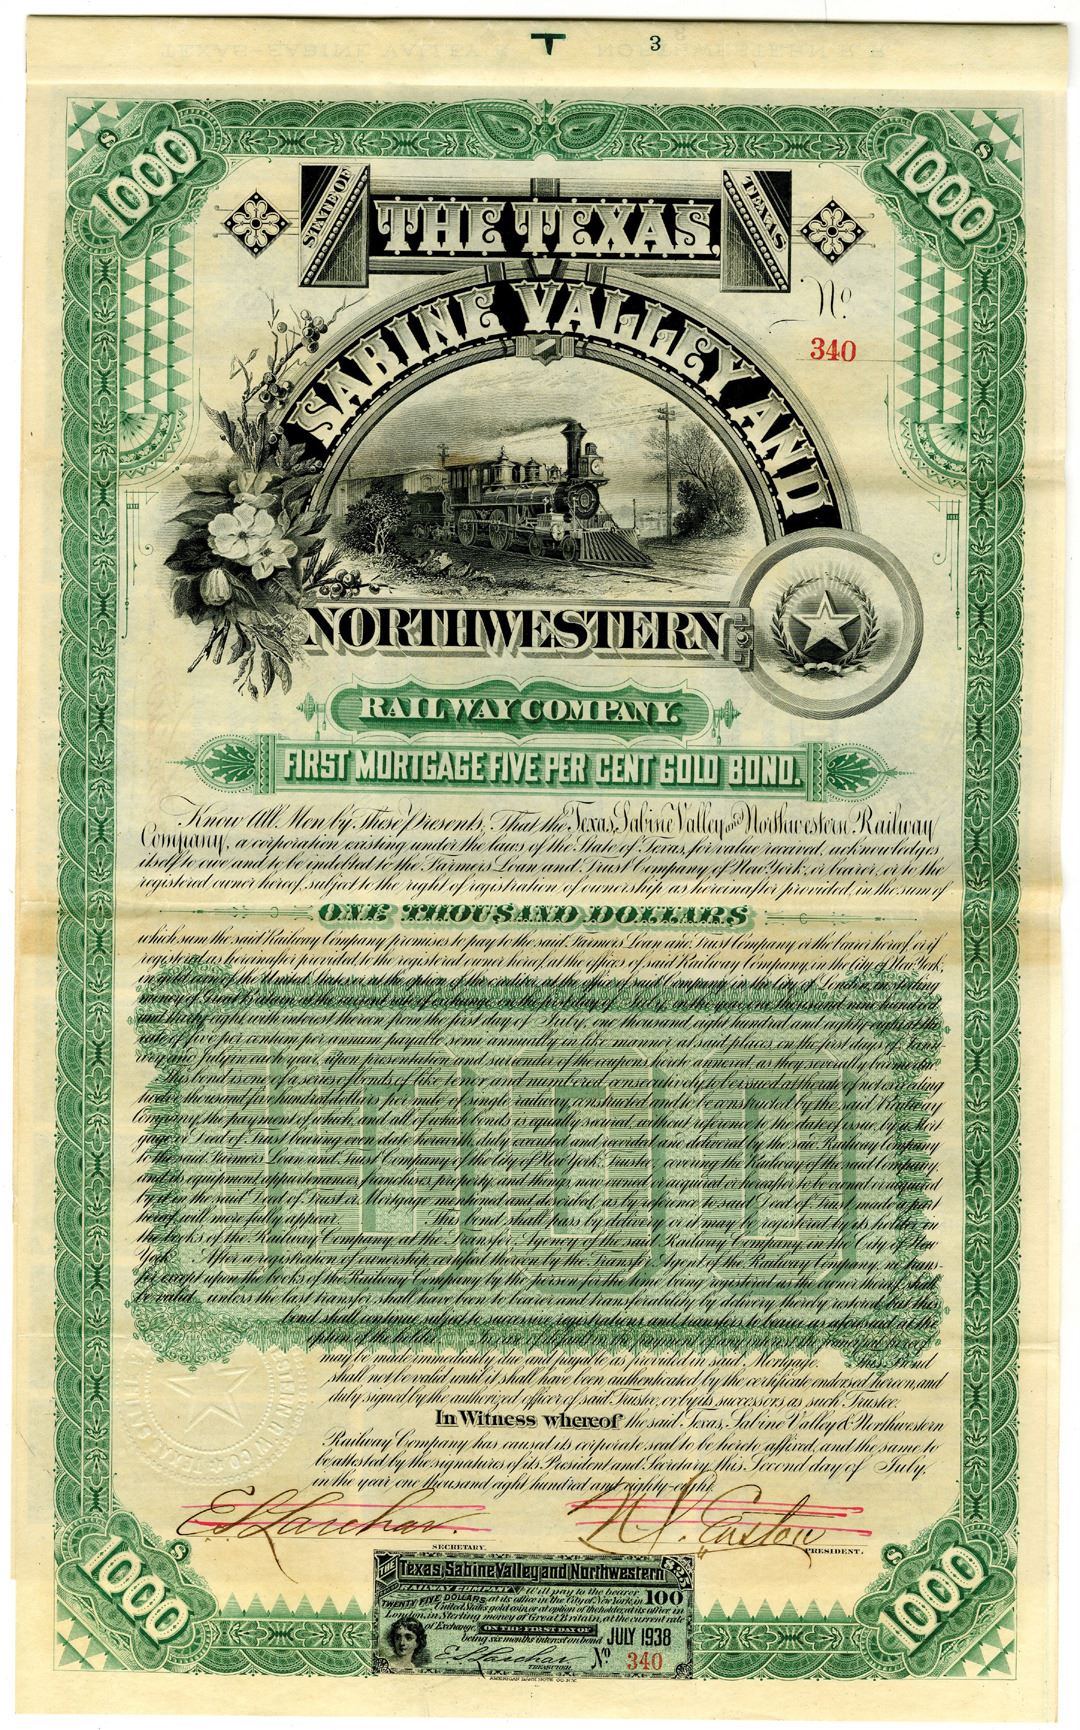 3
$ 1000
$ 1000
STATE OF
TEXAS
THE TEXAS,
SABINE VALLEY AND
No.
340
NORTHWESTERN
RAILWAY COMPANY.
FIRST MORTGAGE FIVE PER CENT GOLD BOND.
Know All Men by These Presents, That the Texas, Sabine Valley and Northwestern Railway
Company, a corporation existing under the laws of the State of Texas, for value received, acknowledges
itself to owe and to be indebted to the Farmers Loan and Trust Company of New York, or bearer, or to the
registered owner hereof, subject to the right of registration of ownership as hereinafter provided, in the sum of
ONE THOUSAND DOLLARS
which sum the said Railway Company promises to pay to the said Farmers Loan and Trust Company or the bearer hereof, or if
registered as hereinafter provided to the registered owner hereof, at the offices of said Railway Company, in the City of New York,
in gold coin of the United States, or at the option of the creditor, at the office of said Company in the City of London, in sterling
money of Great Britain, at the current rate of exchange, on the first day of July, in the year one thousand nine hundred
and thirty-eight, with interest thereon from the first day of July, one thousand eight hundred and eighty-eight, at the
rate of five per centum per annum, payable semi-annually in like manner at said places, on the first days of Janu-
ary and July in each year, upon presentation and surrender of the coupons hereto annexed, as they severally become due.
This bond is one of a series of bonds of like tenor and numbered consecutively, to be issued at the rate of not exceeding
twelve thousand five hundred dollars per mile of single railway, constructed and to be constructed by the said Railway
Company, the payment of which, and all of which bonds is equally secured, without reference to the date of issue, by a Mort-
gage or Deed of Trust bearing even date herewith, duly executed and recorded and delivered by the said Railway Company
to the said Farmers Loan and Trust Company of the City of New York, Trustee, covering the Railway of the said Company,
and its equipment, appurtenances, franchises, property, and things, now owned or acquired or hereafter to be owned or acquired
by it in the said Deed of Trust or Mortgage mentioned and described, as by reference to said Deed of Trust, made a part
hereof, will more fully appear. This bond shall pass by delivery or it may be registered by its holder, in
the books of the Railway Company at the Transfer Agency of the said Railway Company, in the City of New
York. After a registration of ownership, certified thereon by the Transfer Agent of the Railway Company, no trans-
fer except upon the books of the Railway Company by the person for the time being registered as the owner thereof, shall
be valid, unless the last transfer shall have been to bearer and transferability by delivery thereby restored, but this
bond shall continue subject to successive registrations and transfers to bearer as aforesaid at the
option of the holder. In case of default in the payment of any interest the principal hereof
may be made immediately due and payable as provided in said Mortgage. This Bond
shall not be valid until it shall have been authenticated by the certificate endorsed hereon, and
duly signed by the authorized officer of said Trustee, or by its successors as such Trustee.
In Witness whereof the said Texas, Sabine Valley & Northwestern
Railway Company has caused its corporate seal to be hereto affixed, and the same to
be attested by the signatures of its President and Secretary, this Second day of July,
in the year one thousand eight hundred and eighty-eight.
SECRETARY.
PRESIDENT.
$ 1000
$ 1000
THE Texas, Sabine Valley and Northwestern $25
RAILWAY COMPANY Will pay to the bearer 100
TWENTY FIVE DOLLARS at its office in the City of New York, in
United States gold coin, or at option of the holder, at its office in
London, in Sterling money of Great Britain, at the current rate
of Exchange, ON THE FIRST DAY OF
being six months interest on bond JULY 1938
No. 340
TREASURER.
AMERICAN BANK NOTE CO. N.Y.